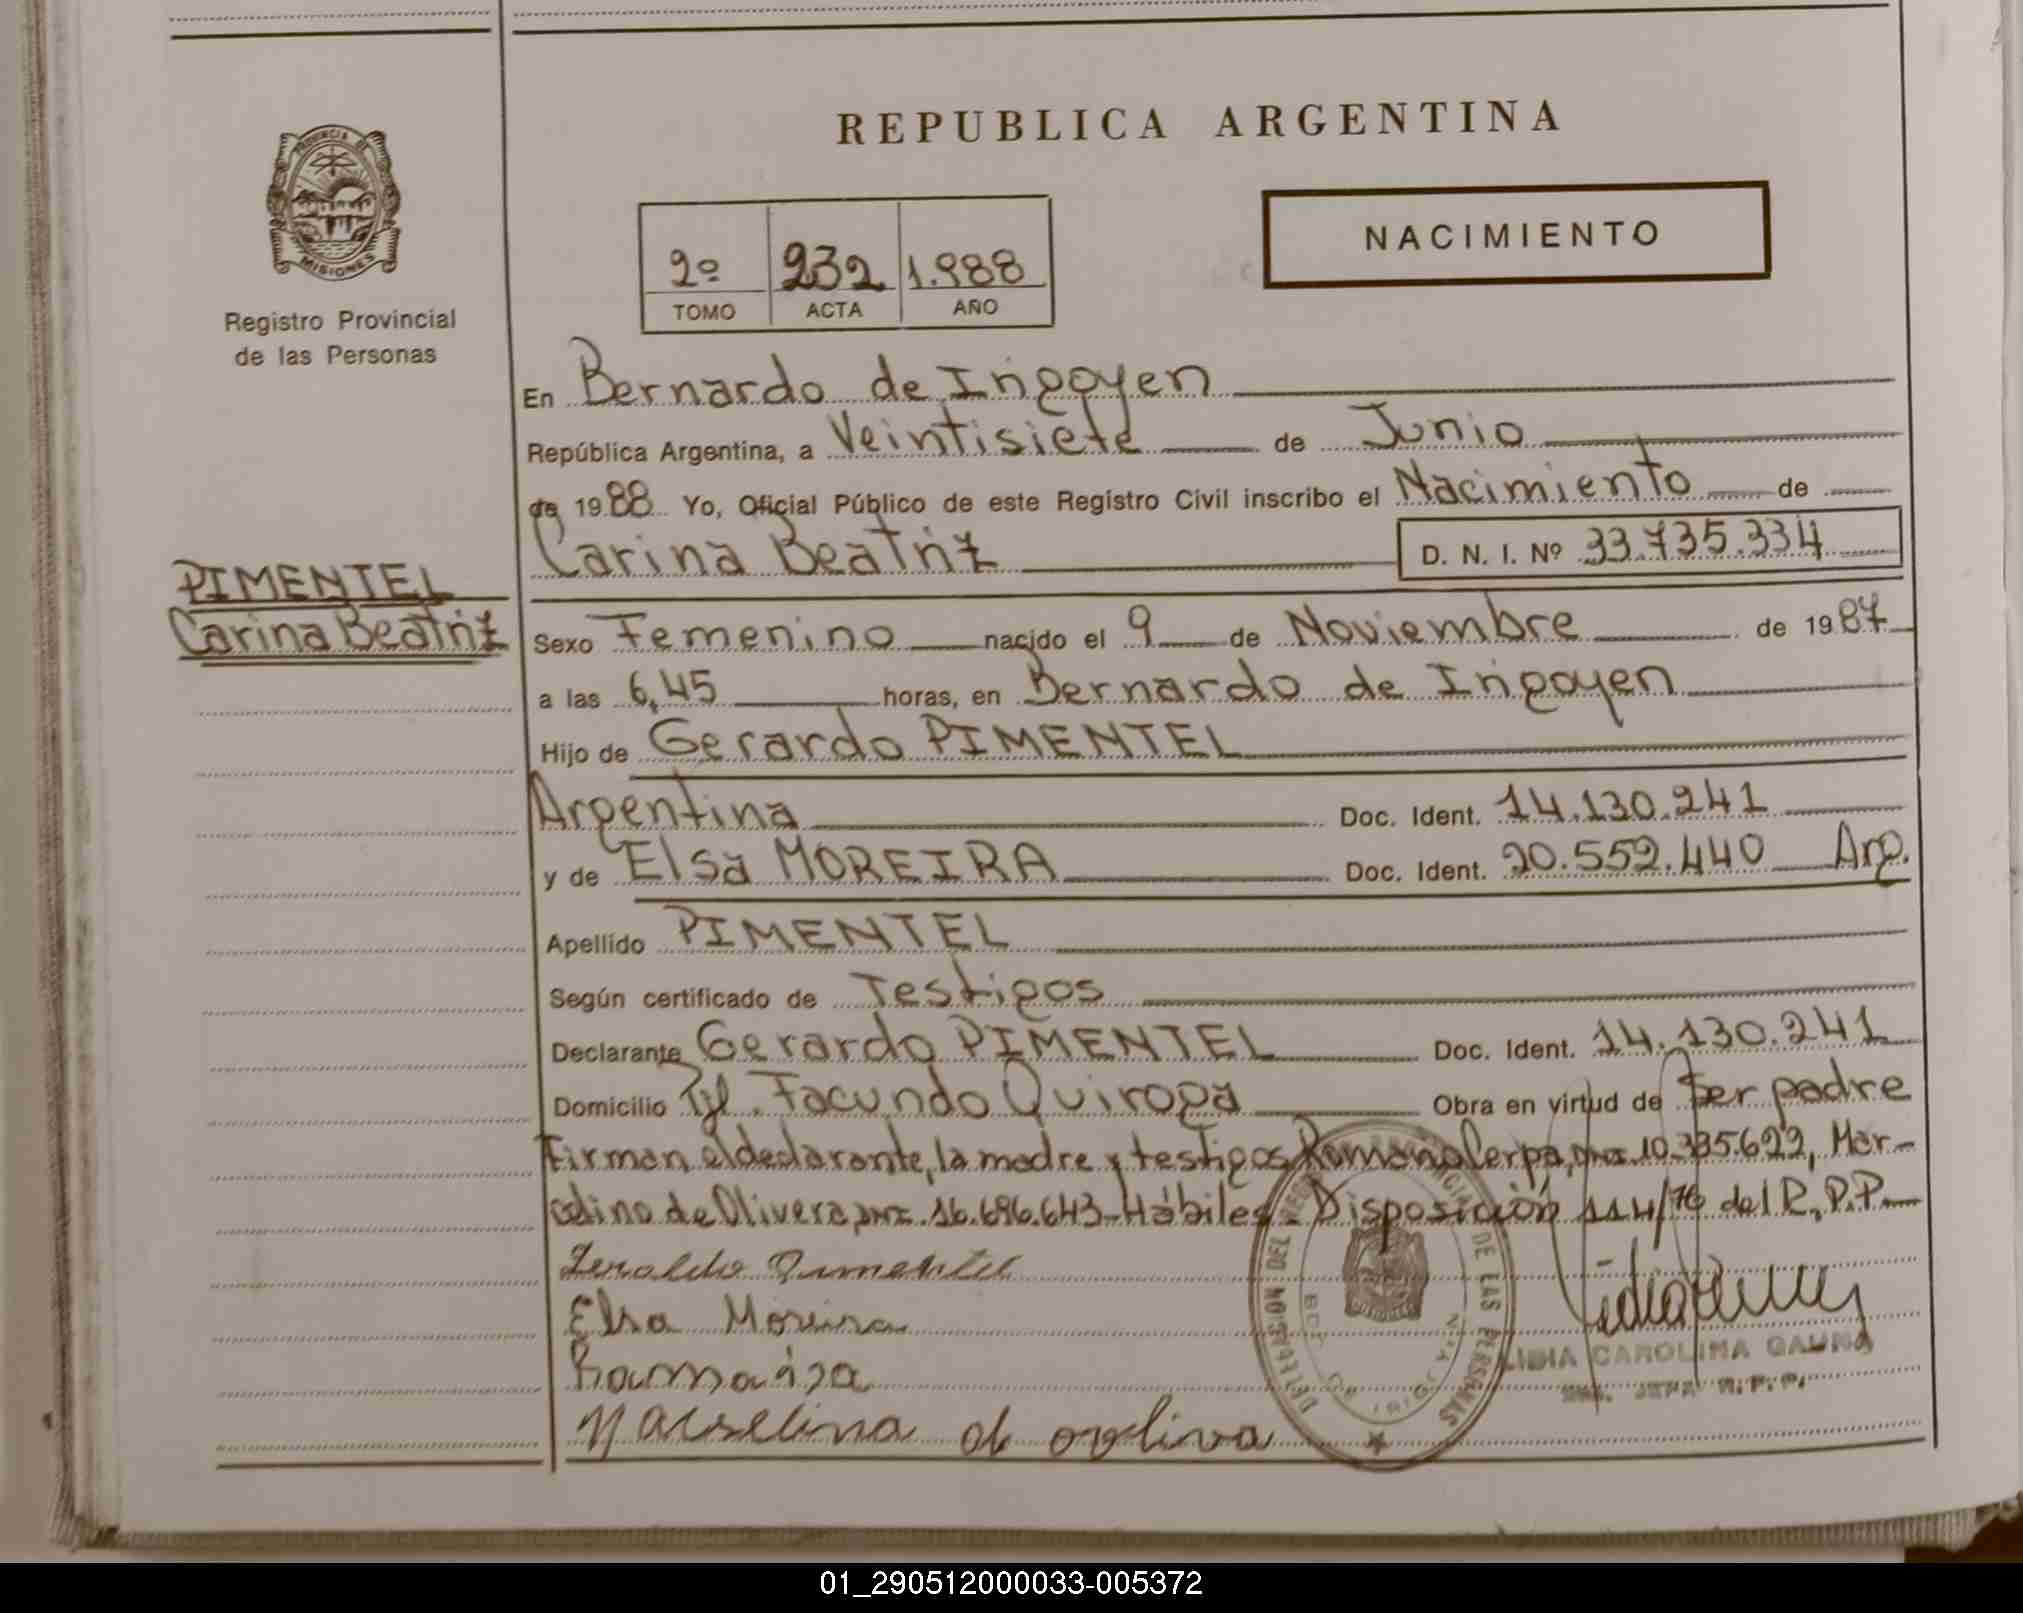 REPUBLICA ARGENTINA
PROVINCIA DE
MISIONES
Registro Provincial
de las Personas
NACIMIENTO
2º 232 1.988
TOMO ACTA AÑO
En Bernardo de Irigoyen
República Argentina, a Veintisiete de Junio
de 1988 Yo, Oficial Público de este Registro Civil inscribo el Nacimiento de
Carina Beatriz D. N. I. Nº 33.735.334
PIMENTEL
Carina Beatriz
Sexo Femenino nacido el 9 de Noviembre de 1987
a las 6,45 horas, en Bernardo de Irigoyen
Hijo de Gerardo PIMENTEL
Argentina Doc. Ident. 14.130.241
y de Elsa MOREIRA Doc. Ident. 20.552.440 Arg.
Apellido PIMENTEL
Según certificado de Testigos
Declarante Gerardo PIMENTEL Doc. Ident. 14.130.241
Domicilio Pje. Facundo Quiroga Obra en virtud de Ser padre
Firman el declarante, la madre y testigos DNI. 10.335.622, Mar-
celino de Olivera, DNI. 16.696.643-Hábiles. Disposición 114/76 del R.P.P.
Elsa Moreira
LIDIA CAROLINA GAUNA
JEFA R.P.P.
01_290512000033-005372